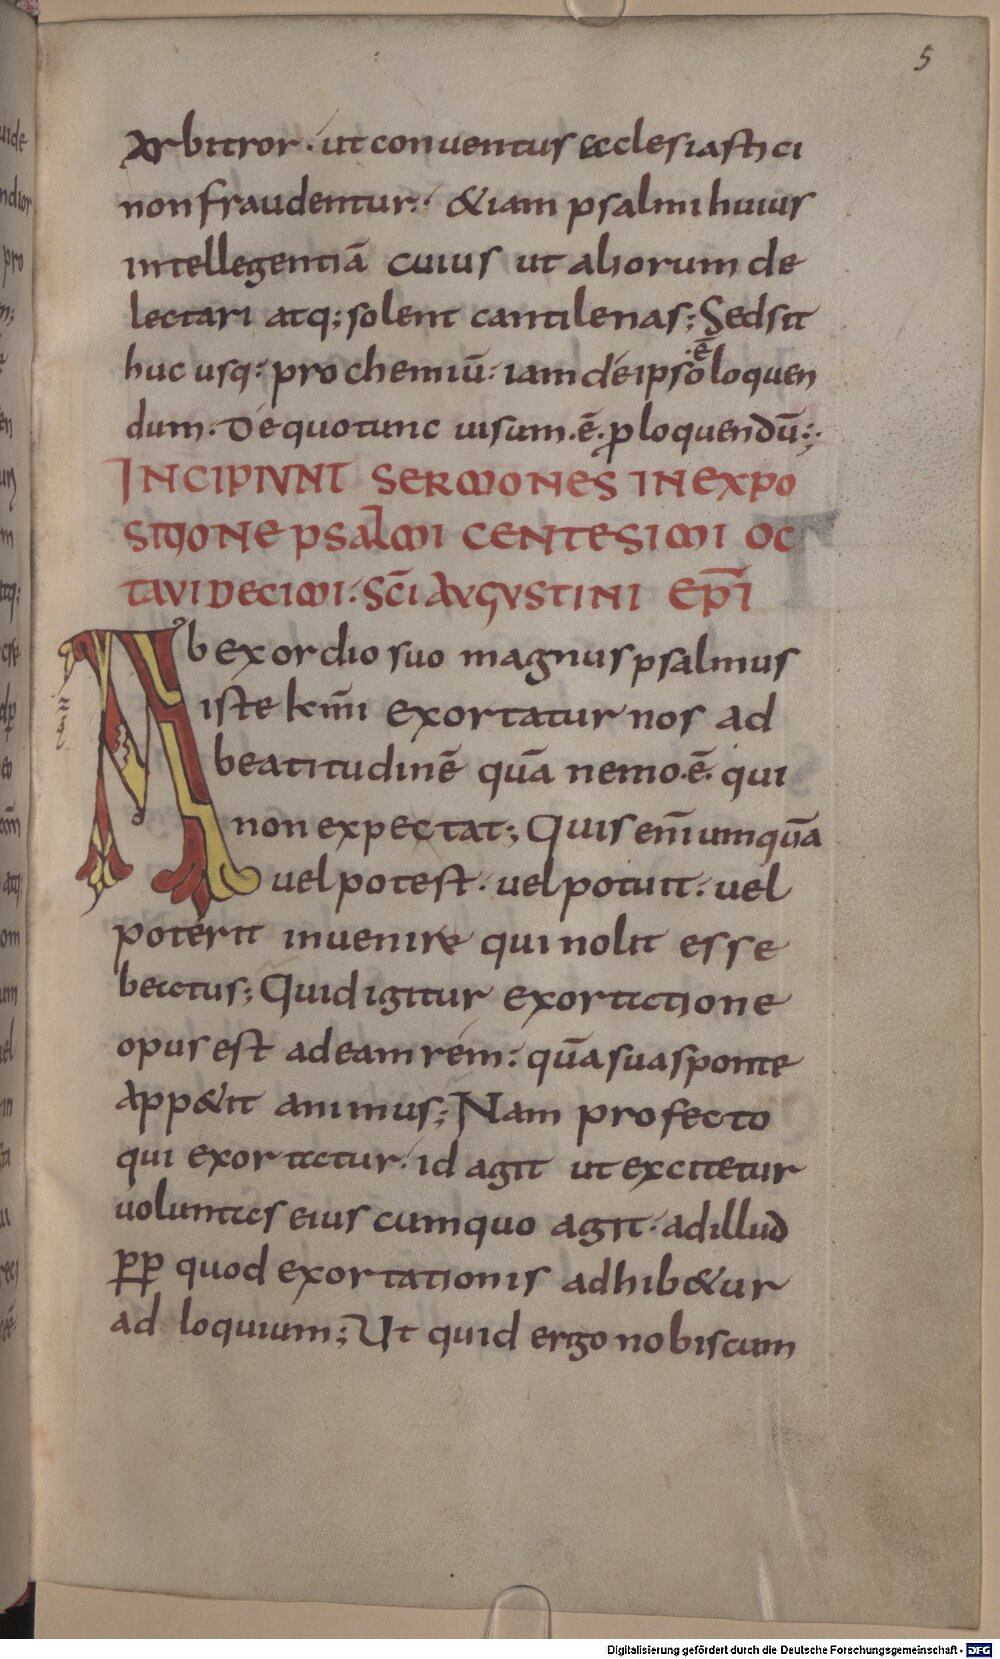 5
Arbitror· ut conuentus ecclesiastici
non fraudentur· &iam psalmi huius
intellegentiā cuius ut aliorum de
lectari atq; solent cantilenas; Sed sit
huc usq: prochemiū· iam de ipso ·ē· loquen
dum· De quo tunc uisum·ē· ꝓloquendū;
INCIPIUNT SERMONES IN EXPO
SITIONE PSALMI CENTESIMI OC
TAVI DECIMI· SC̄I AVGVSTINI EP̄I
Ab exordio suo magnus psalmus
iste km̄i exortatur nos ad
beatitudinē quā nemo·ē· qui
non expectat; Quis enī umquā
uel potest· uel potuit· uel
poterit inuenire qui nolit esse
beatus; Quid igitur exortatione
opus est ad eam rem: quā sua sponte
app&it animus; Nam profecto
qui exortatur· id agit ut excitetur
uoluntas eius cum quo agit· ad illud
ꝓꝓ quod exortationis adhib&ur
adloquium; Ut quid ergo nobiscum
Digitalisierung gefördert durch die Deutsche Forschungsgemeinschaft - DFG